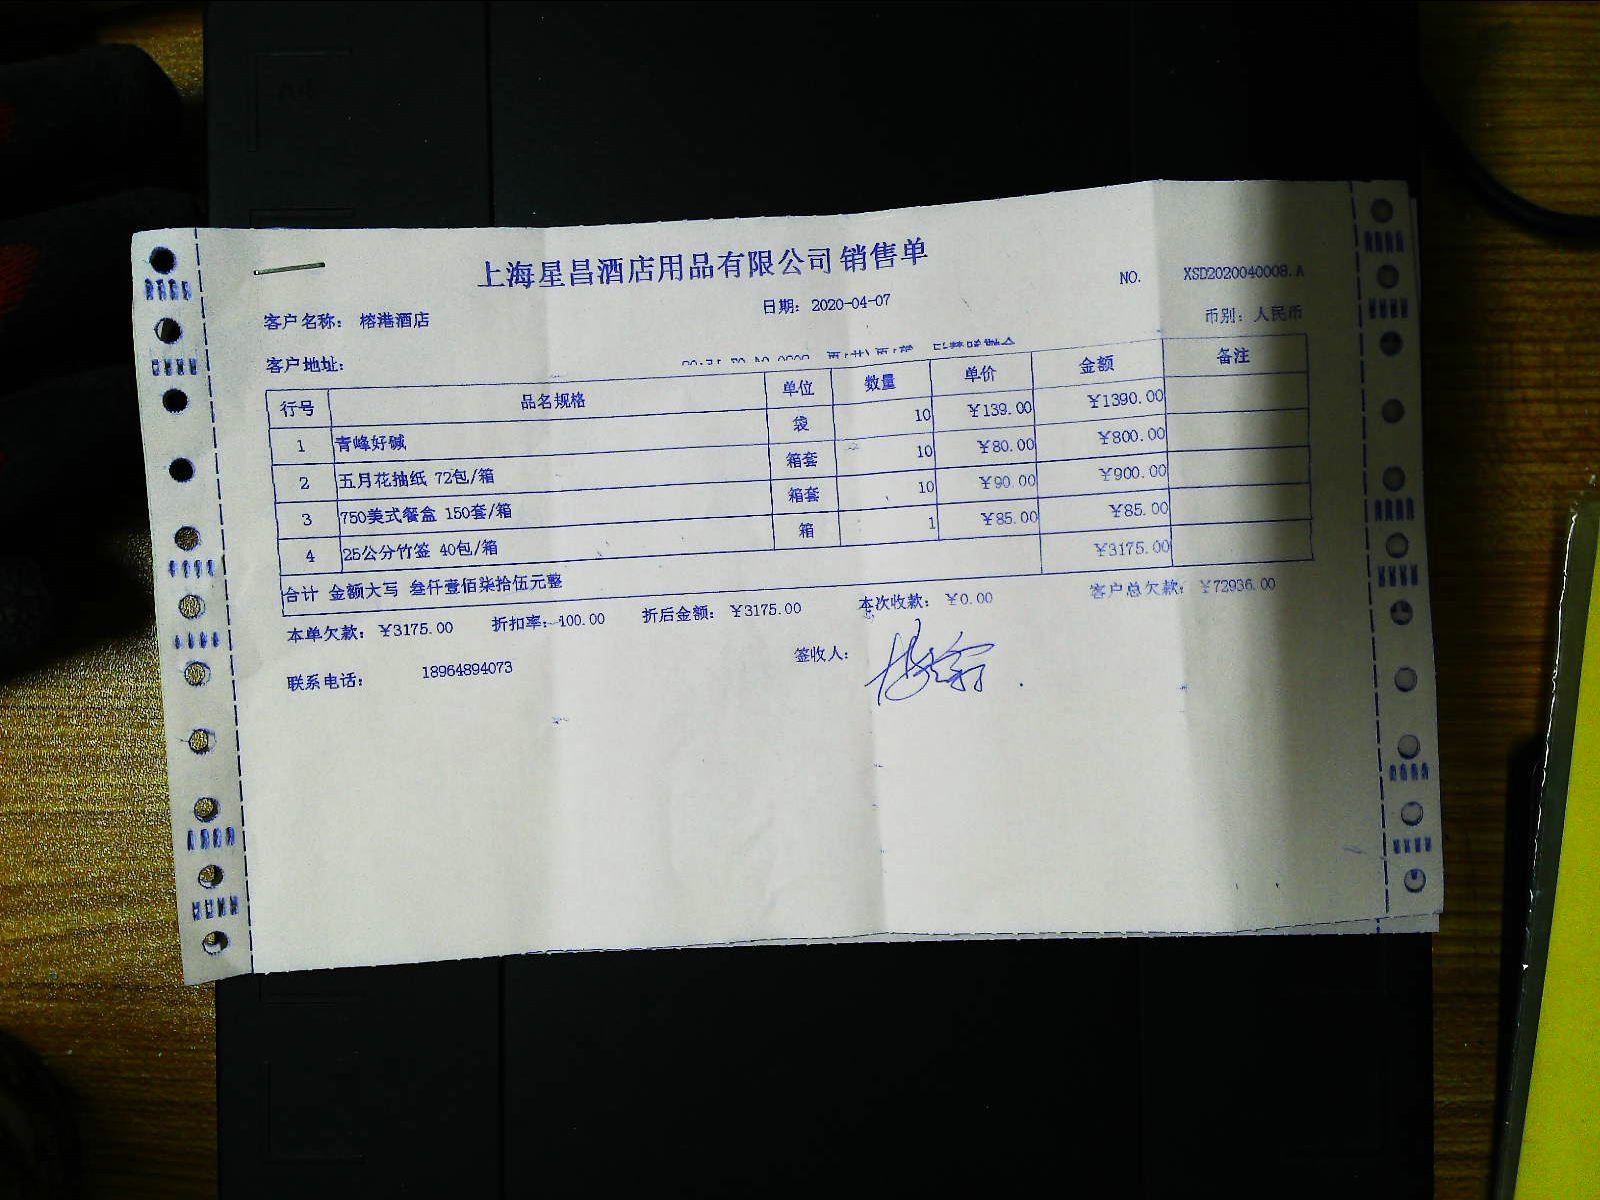 上海星昌酒店用品有限公司 销售单
NO. XSD2020040008.A
日期: 2020-04-07
客户名称: 榕港酒店
币别: 人民币
客户地址:
行号 品名规格 单位 数量 单价 金额 备注
1 青峰好碱 袋 10 ¥139.00 ¥1390.00
2 五月花抽纸 72包/箱 箱套 10 ¥80.00 ¥800.00
3 750美式餐盒 150套/箱 箱套 10 ¥90.00 ¥900.00
4 25公分竹签 40包/箱 箱 1 ¥85.00 ¥85.00
合计 金额大写 叁仟壹佰柒拾伍元整 ¥3175.00
本单欠款: ¥3175.00 折扣率: 100.00 折后金额: ¥3175.00 本次收款: ¥0.00 客户总欠款: ¥72936.00
联系电话: 18964894073 签收人: